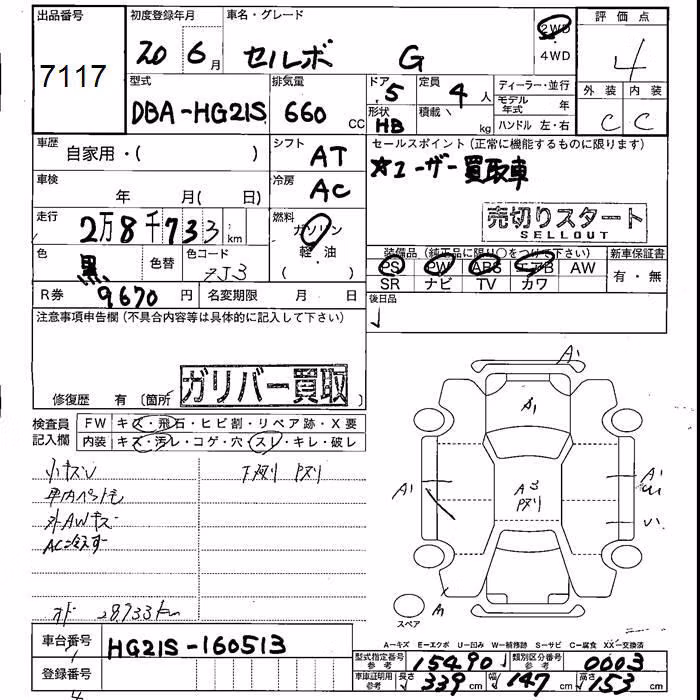 出品番号
7117
初度登録年月
20 6月
車名・グレード
セルボ G
2WD
4WD
評価点
4
外装 内装
C C
型式
DBA-HG21S
排気量
660 CC
ドア
5
形状
HB
定員
4 人
積載
kg
ディーラー・並行
モデル年式 年
ハンドル 左・右
車歴
自家用・( )
シフト
AT
セールスポイント(正常に機能するものに限ります)
☆ユーザー買取車
車検
年 月( 日)
冷房
AC
走行
2万8千733km
燃料
ガソリン
軽・油
( )
売切りスタート
SELLOUT
色
黒
色替
色コード
ZJ3
装備品(純正品に限り○をつけて下さい)
PS PW ABS エアB AW
SR ナビ TV カワ
新車保証書
有・無
R券 9670 円
名変期限 月 日
後日品
注意事項申告欄(不具合内容等は具体的に記入して下さい)
ガリバー買取
修復歴 有(箇所
検査員記入欄
FW キズ・飛石・ヒビ割・リペア跡・X要
内装 キズ・汚レ・コゲ・穴・スレ・キレ・破レ
小キズU
下メグリ Pヌリ
外AWキズ
AC冷えず
オド 28,733km
A1
A1
A1
A1
A3
Pヌリ
スペア
車台番号
HG21S-160513
登録番号
A―キズ E―エクボ U―凹み W―補修跡 S―サビ C―腐食 XX―交換済
型式指定番号 参考
15490
類別区分番号 参考
0003
車庫証明用 参考
長さ 339 cm 幅 147 cm 高さ 153 cm